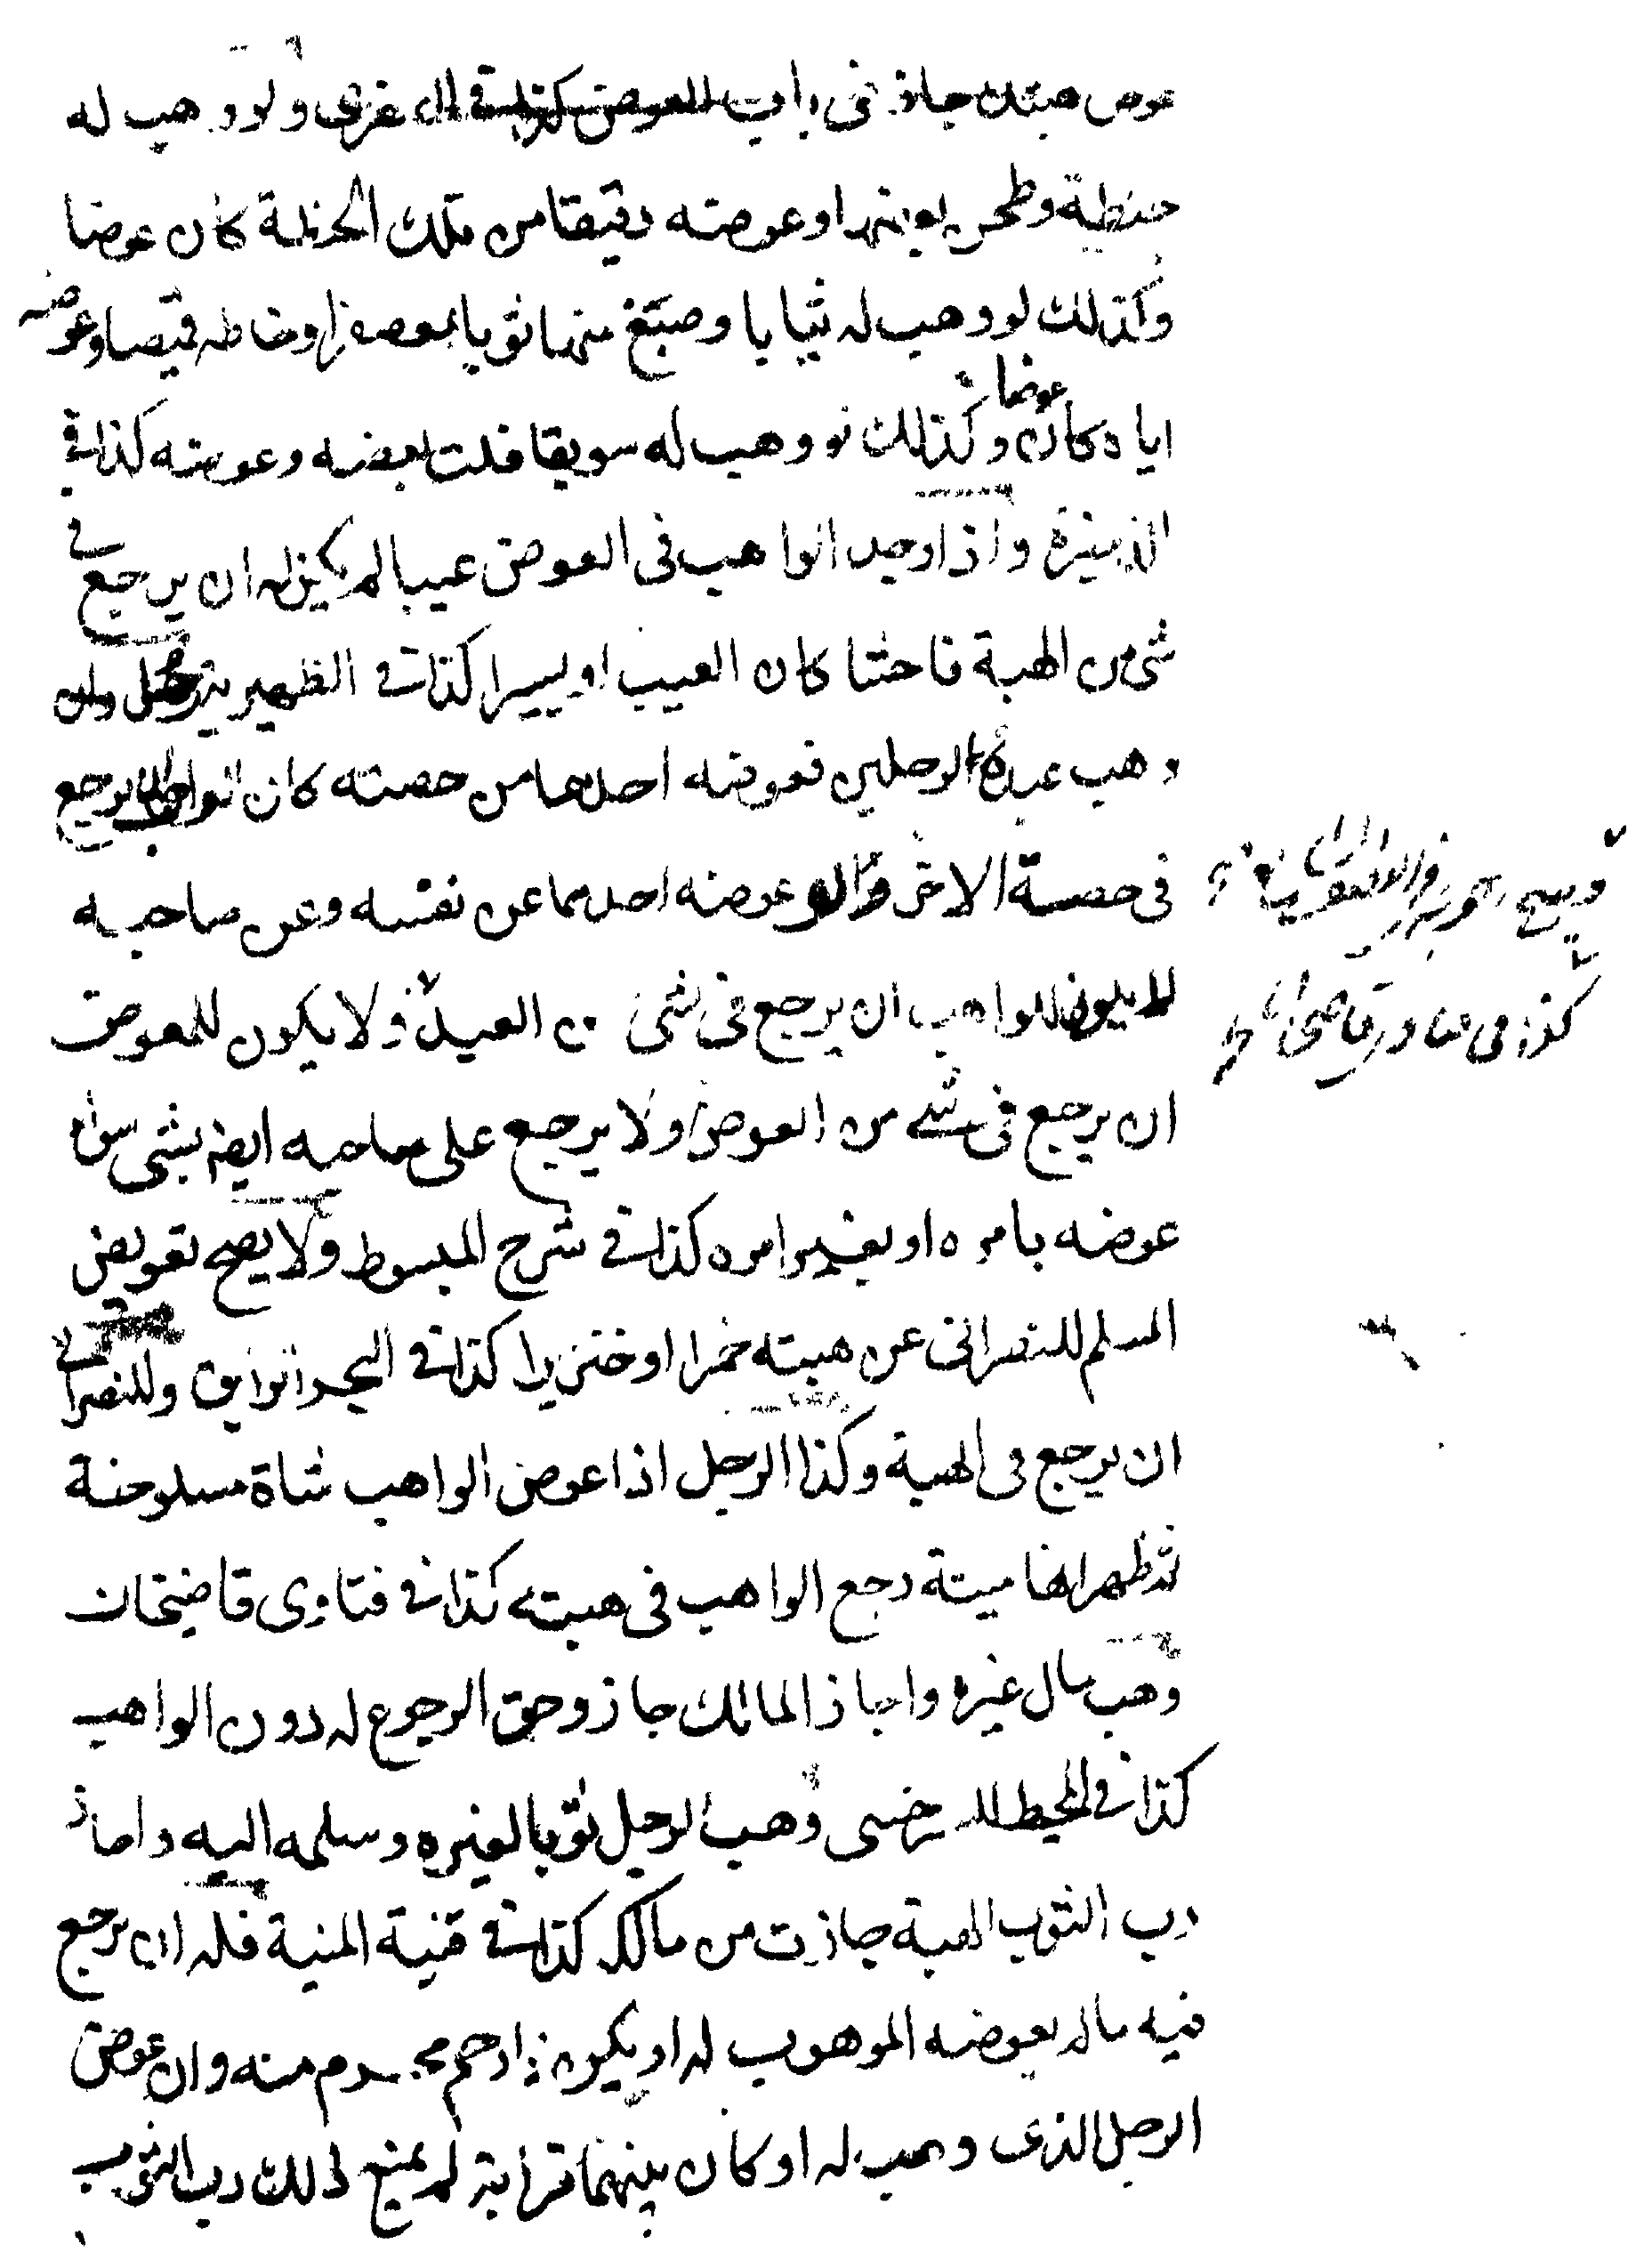 عوض هبتك جاز فى باب العوض كذا فى المغرى ولو وهب له
حنطة وطحن بعضها وعوضه دقيقا من تلك الحنطة كان عوضا
وكذلك لو وهب له ثيابا وصبغ منها ثوبا بعصفر او خاطه قميصا وعوضه
اياه كان عوضا وكذلك لو وهب له سويقا فلت بعضه وعوضه كذا فى
الذخيرة واذا وجد الواهب فى العوض عيبا لم يكن له ان يرجع فى
شئ من الهبة فاحشا كان العيب او يسيرا كذا فى الظهيرية رجل
وهب عبدا لرجلين فعوضه احدهما من حصته كان للواهب ان يرجع
فى حصة الاخر ولو عوضه احدهما عن نفسه وعن صاحبه
لا يكون للواهب ان يرجع فى شئ من العبد ولا يكون للمعوض
ان يرجع فى شئ من العوض ولا يرجع على صاحبه ايضا بشئ سواء
عوضه بامره او بغير امره كذا فى شرح المبسوط ولا يصح تعويض
المسلم للنصرانى عن هبته خمرا او خنزيرا كذا فى البحر الرايق وللنصرانى
ان يرجع فى الهبة وكذا الرجل اذا عوض الواهب شاة مسلوخة
ثم ظهر انها ميتة رجع الواهب فى هبته كذا فى فتاوى قاضيخان
وهب مال غيره واجاز المالك جاز وحق الرجوع له دون الواهب
كذا فى المحيط للسرخسى وهب لرجل ثوبا لغيره وسلمه اليه واجاز
رب الثوب الهبة جازت من مالكه كذا فى قنية المنية فله ان يرجع
فيه ما لم يعوضه الموهوب له او يكون ذا رحم محرم منه وان عوض
الرجل الذى وهب له او كان بينهما قرابة لم يمنع ذلك رب الثوب
كذا فى فتاوى قاضيخان